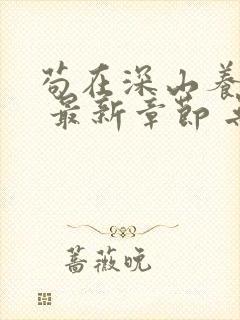 苟在深山养
最新章节
蔷薇晚